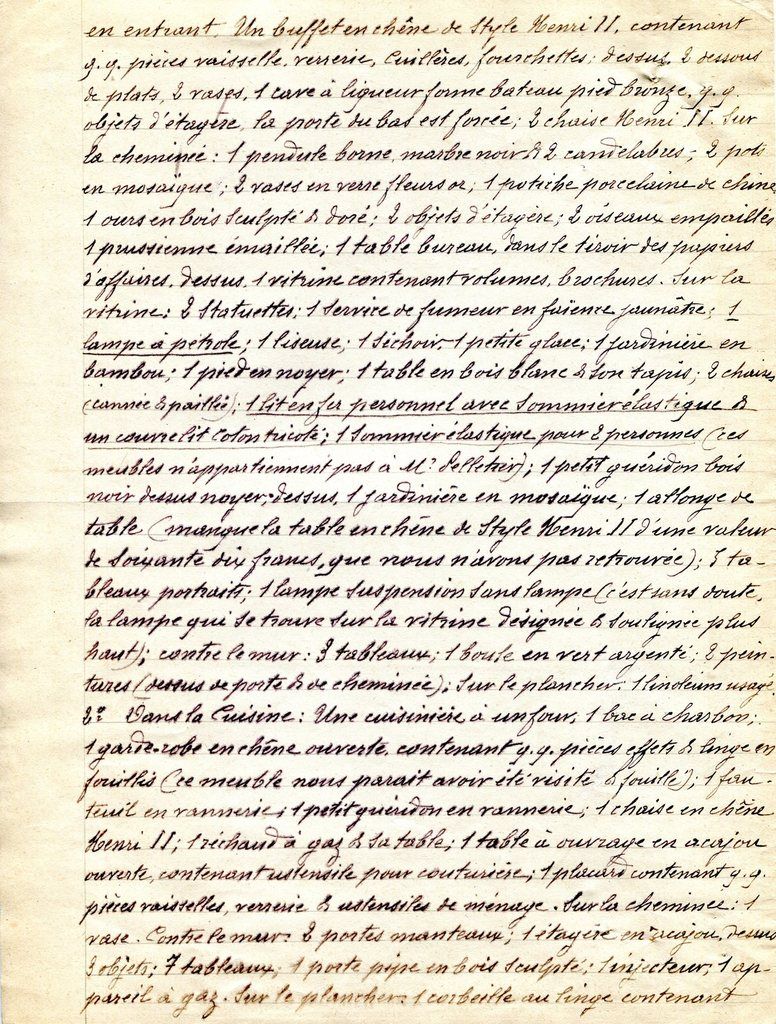 en entrant. Un buffet en chêne de Style Henri II, contenant
q.q. pièces vaisselle, verrerie, Cuillères, fourchettes; dessus, 2 dessous
de plats, 2 vases, 1 cave à liqueur forme bateau pied bronze, q.q.
objets d'étagère, la porte du bas est forcée; 2 chaise Henri II. Sur
la cheminée: 1 pendule borne, marbre noir & 2 candelabres; 2 pots
en mosaïque; 2 vases en verre fleurs or; 1 potiche porcelaine de chine
1 ours en bois sculpté & doré; 2 objets d'étagère; 2 oiseaux empaillés
1 prussienne émaillée; 1 table bureau, dans le tiroir des papiers
d'affaires, dessus, 1 vitrine contenant volumes, brochures. Sur la
vitrine: 2 Statuettes; 1 Service de fumeur en faïence jaunâtre; 1
lampe à pétrole; 1 liseuse; 1 Séchoir, 1 petite glace; 1 jardinière en
bambou; 1 pied en noyer; 1 table en bois blanc & son tapis; 2 chaises
(cannée & paillée); 1 lit en fer personnel avec Sommier élastique &
un couvre lit Coton tricoté; 1 Sommier élastique pour 2 personnes (ces
meubles n'appartiennent pas à Mr. Pelletier); 1 petit guéridon bois
noir dessus noyer; dessus, 1 jardinière en mosaïque; 1 allonge de
table (manque la table en chêne de Style Henri II d'une valeur
de Soixante dix francs, que nous n'avons pas retrouvée); 3 ta-
bleaux portraits; 1 lampe suspension sans lampe (c'est sans doute,
la lampe qui se trouve sur la vitrine désignée & soulignée plus
haut); contre le mur: 3 tableaux; 1 boule en vert argenté; 2 pein-
tures (dessus de porte & de cheminée); Sur le plancher: 1 linoleum usagé
2º Dans la Cuisine: Une cuisinière à un four, 1 bac à charbon;
1 garde-robe en chêne ouverte, contenant q.q. pièces effets & linge en
fouillés (ce meuble nous parait avoir été visité & fouillé); 1 fau-
teuil en vannerie; 1 petit guéridon en vannerie; 1 chaise en chêne
Henri II; 1 réchaud à gaz & sa table; 1 table à ouvrage en acajou
ouverte, contenant ustensile pour couturière; 1 placard contenant q.q.
pièces vaisselles, verrerie & ustensiles de ménage. Sur la cheminée: 1
vase. Contre le mur: 2 portes manteaux; 1 étagère en acajou, dessus
3 objets; 7 tableaux; 1 porte pipe en bois sculpté; 1 injecteur; 1 ap-
pareil à gaz. Sur le plancher: 1 corbeille au linge contenant